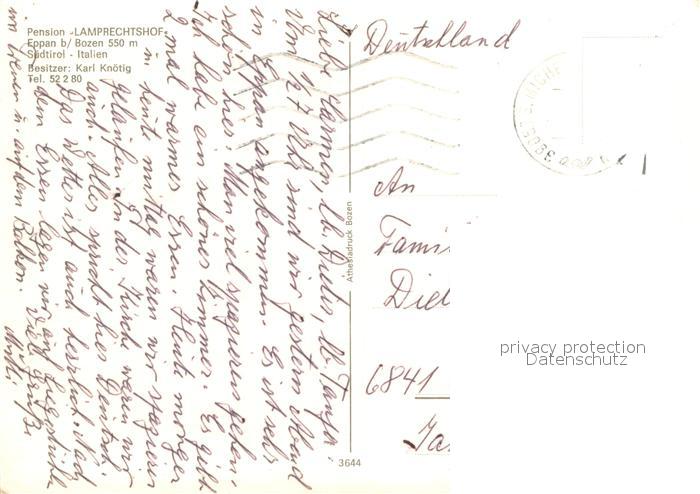 Pension »LAMPRECHTSHOF«
Eppan b/ Bozen 550 m
Südtirol - Italien
Besitzer: Karl Knötig
Tel. 52 2 80
Liebe Carmen, lb. Dieter, lb. Tanja.
Um 1/2 7 Uhr sind wir gestern Abend
in Eppan angekommen. Es ist sehr
schön hier. Man viel spazieren gehen.
Ich habe ein schönes Zimmer. Es gibt
2 mal warmes Essen. Heute morgen
heute mittag waren wir spazieren
gelaufen. In der Kirch waren wir
auch. Alles spricht hier Deutsch.
Das Wetter ist auch herrlich. Nach
dem Essen liegen wir auf Liegestühle
im Freien u. auf dem Balkon. Viele Grüße
Mutti
Athesiadruck Bozen
3644
Deutschland
39057
An
Fami
Diet
6841
privacy protection
Datenschutz